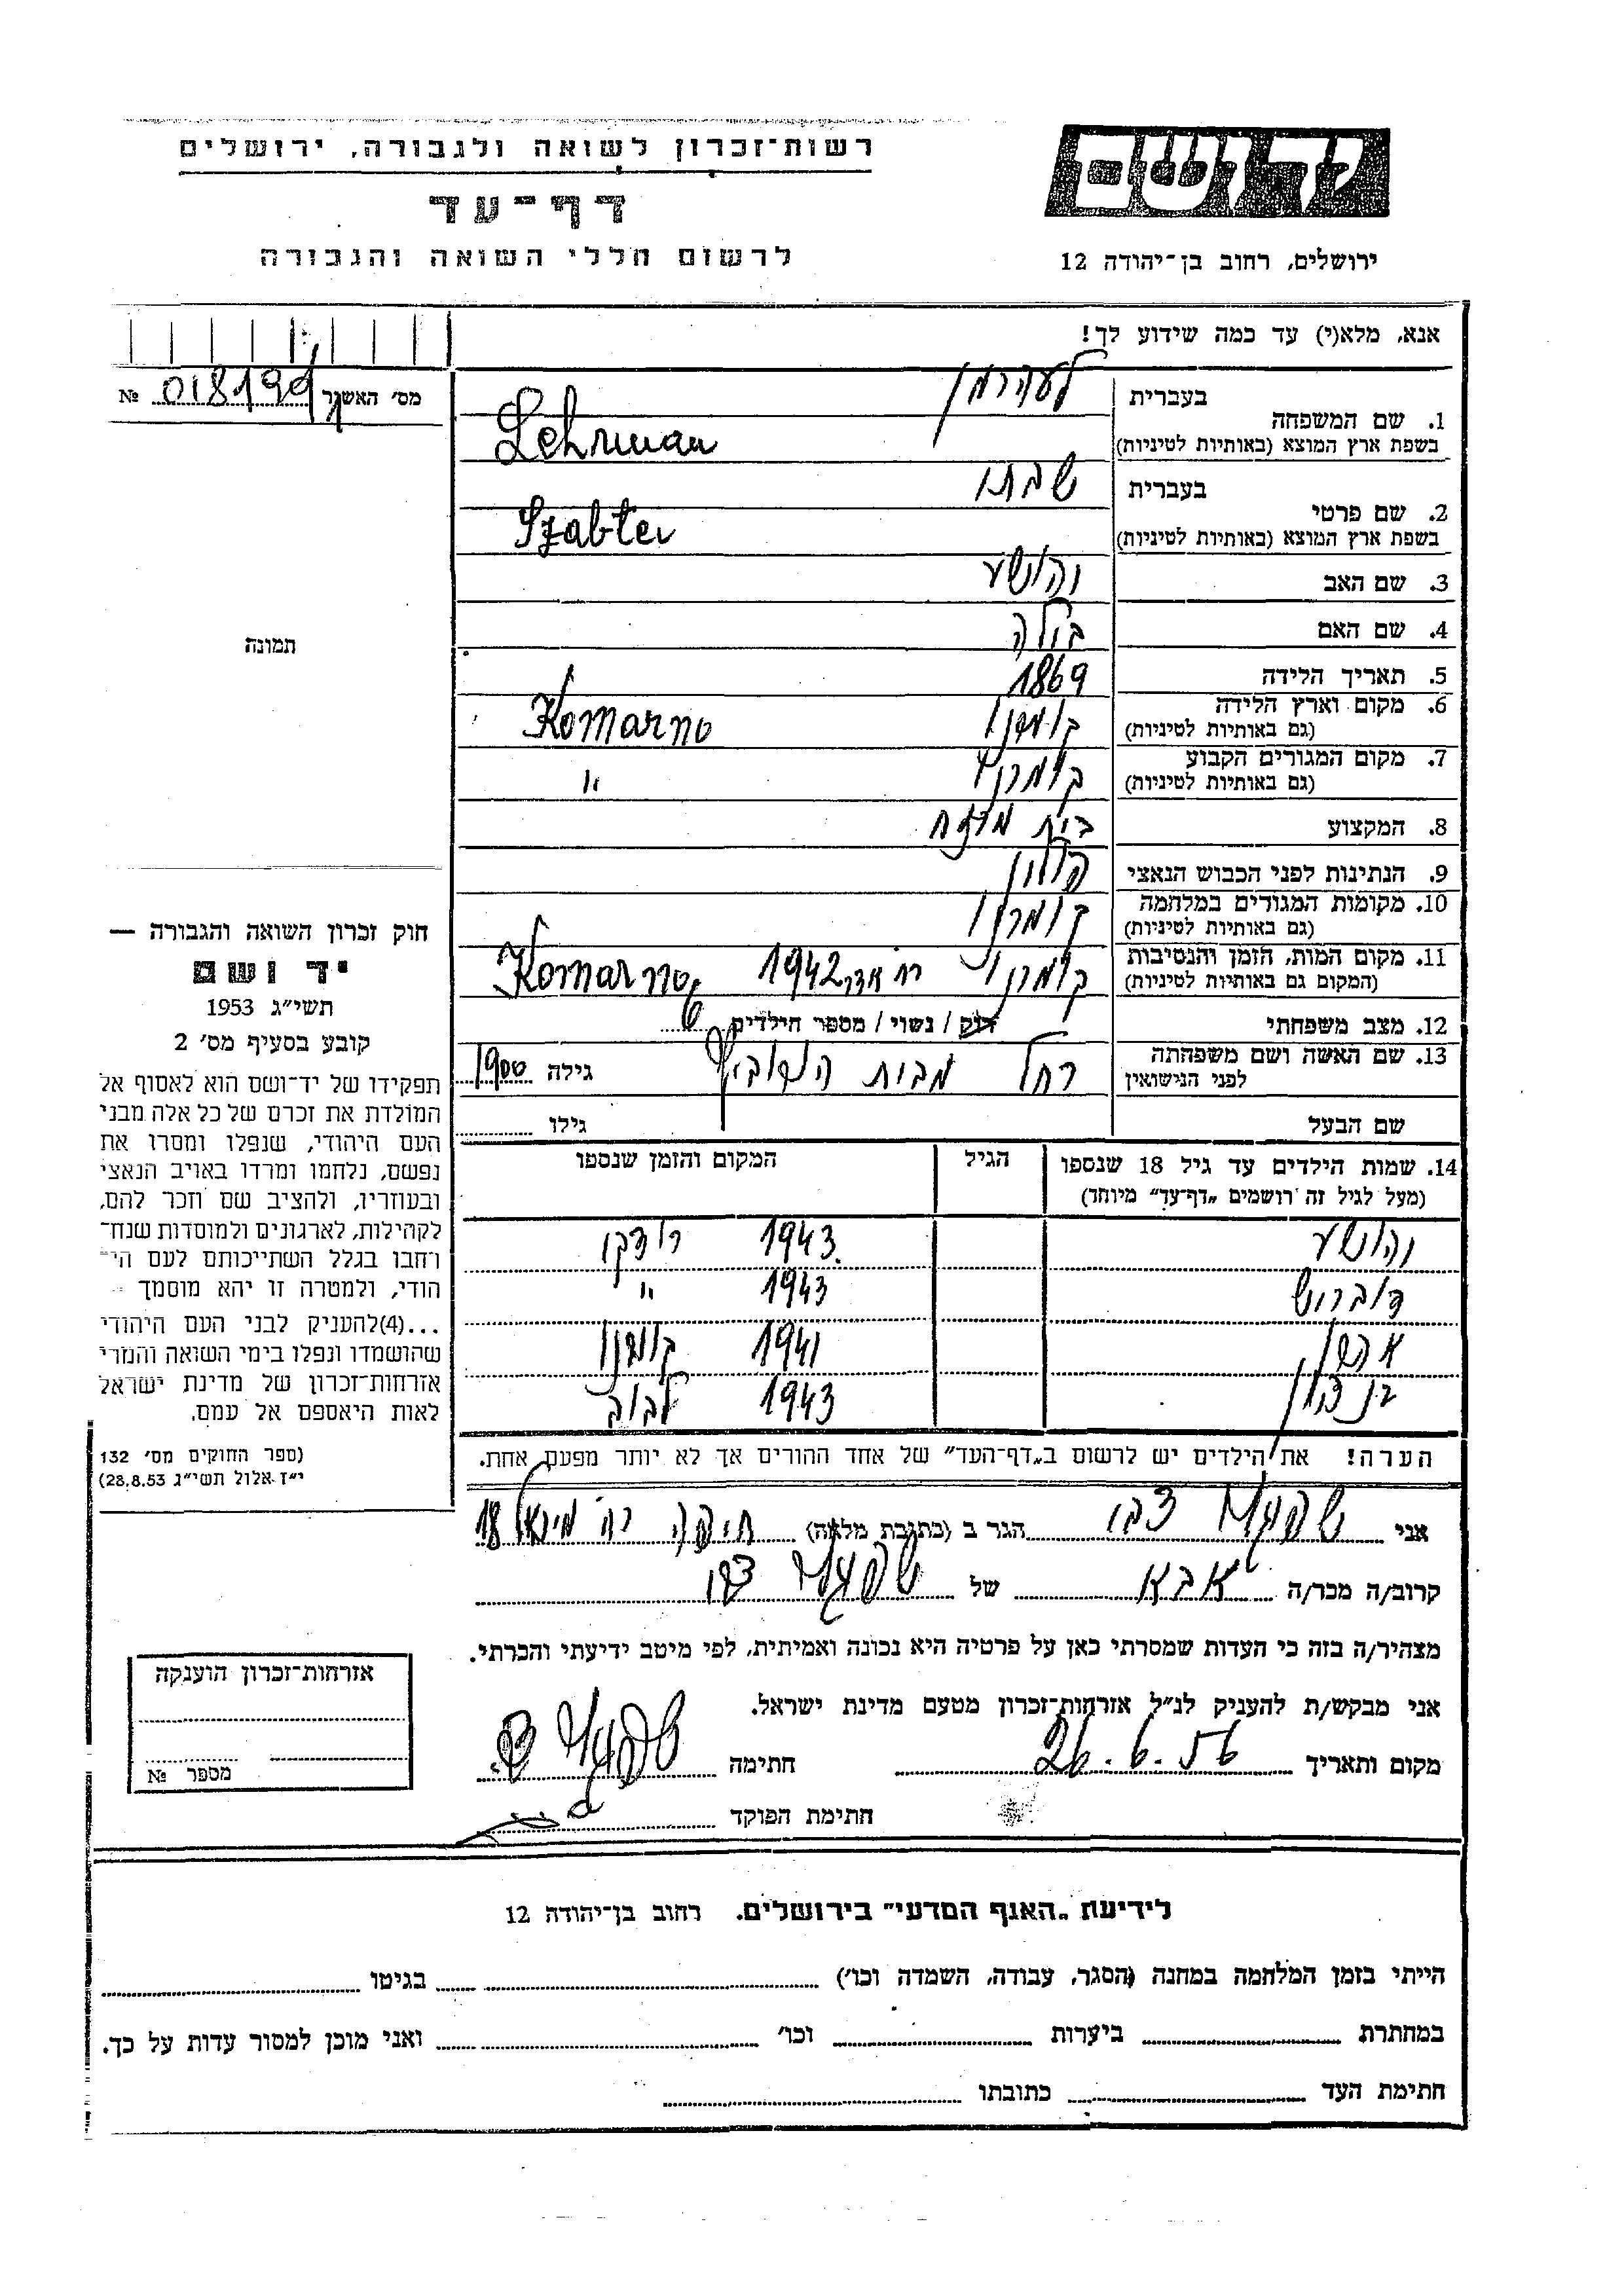 רשות־זכרון לשואה ולגבורה, ירושלים
דף־עד
לרשום חללי השואה והגבורה
יד ושם
ירושלים, רחוב בן־יהודה 12
אנא, מלא(י) עד כמה שידוע לך!
מס׳ האשנר № 018199
1. שם המשפחה
בעברית לעהרמן
בשפת ארץ המוצא (באותיות לטיניות) Lehrman
2. שם פרטי
בעברית שבתי
בשפת ארץ המוצא (באותיות לטיניות) Szabtei
3. שם האב יהושע
4. שם האם ביילה
5. תאריך הלידה 1869
6. מקום וארץ הלידה
(גם באותיות לטיניות) קומרנו Komarno
7. מקום המגורים הקבוע
(גם באותיות לטיניות) קומרנו "
8. המקצוע בית
9. הנתינות לפני הכבוש הנאצי פולין
10. מקומות המגורים במלחמה
(גם באותיות לטיניות) קומרנו
11. מקום המות, הזמן והנסיבות
(המקום גם באותיות לטיניות) קומרנו 1942 Komarno
12. מצב משפחתי רוק / נשוי / מספר הילדים 6
13. שם האשה ושם משפחתה
לפני הנישואין רחל מבית גילה 1900
שם הבעל גילו
14. שמות הילדים עד גיל 18 שנספו
(מעל לגיל זה רושמים „דף־עד״ מיוחד)
הגיל
המקום והזמן שנספו
יהושע 1943 רודקי
דוברוש 1943 "
1941 קומרנו
בן ציון 1943 לבוב
הערה! את הילדים יש לרשום ב„דף־העד״ של אחד ההורים אך לא יותר מפעם אחת.
תמונה
חוק זכרון השואה והגבורה —
יד ושם
תשי״ג 1953
קובע בסעיף מס׳ 2
תפקידו של יד־ושם הוא לאסוף אל
המולדת את זכרם של כל אלה מבני
העם היהודי, שנפלו ומסרו את
נפשם, נלחמו ומרדו באויב הנאצי
ובעוזריו, ולהציב שם וזכר להם,
לקהילות, לארגונים ולמוסדות שנח־
רחבו בגלל השתייכותם לעם הי־
הודי, ולמטרה זו יהא מוסמך -
...(4)להעניק לבני העם היהודי
שהושמדו ונפלו בימי השואה והמרי
אזרחות־זכרון של מדינת ישראל
לאות היאספם אל עמם.
(ספר החוקים מס׳ 132
י״ז אלול תשי״ג 28.8.53)
אני צבי הגר ב (כתובת מלאה) חיפה רח׳ 18
קרוב/ה מכר/ה אבא של צבי
מצהיר/ה בזה כי העדות שמסרתי כאן על פרטיה היא נכונה ואמיתית, לפי מיטב ידיעתי והכרתי.
אני מבקש/ת להעניק לנ״ל אזרחות־זכרון מטעם מדינת ישראל.
מקום ותאריך 26.6.56 חתימה
חתימת הפוקד
אזרחות־זכרון הוענקה
מספר №
לידיעת „האגף המדעי״ בירושלים. רחוב בן־יהודה 12
הייתי בזמן המלחמה במחנה (הסגר, עבודה, השמדה וכו׳) בגיטו
במחתרת ביערות וכו׳ ואני מוכן למסור עדות על כך.
חתימת העד כתובתו